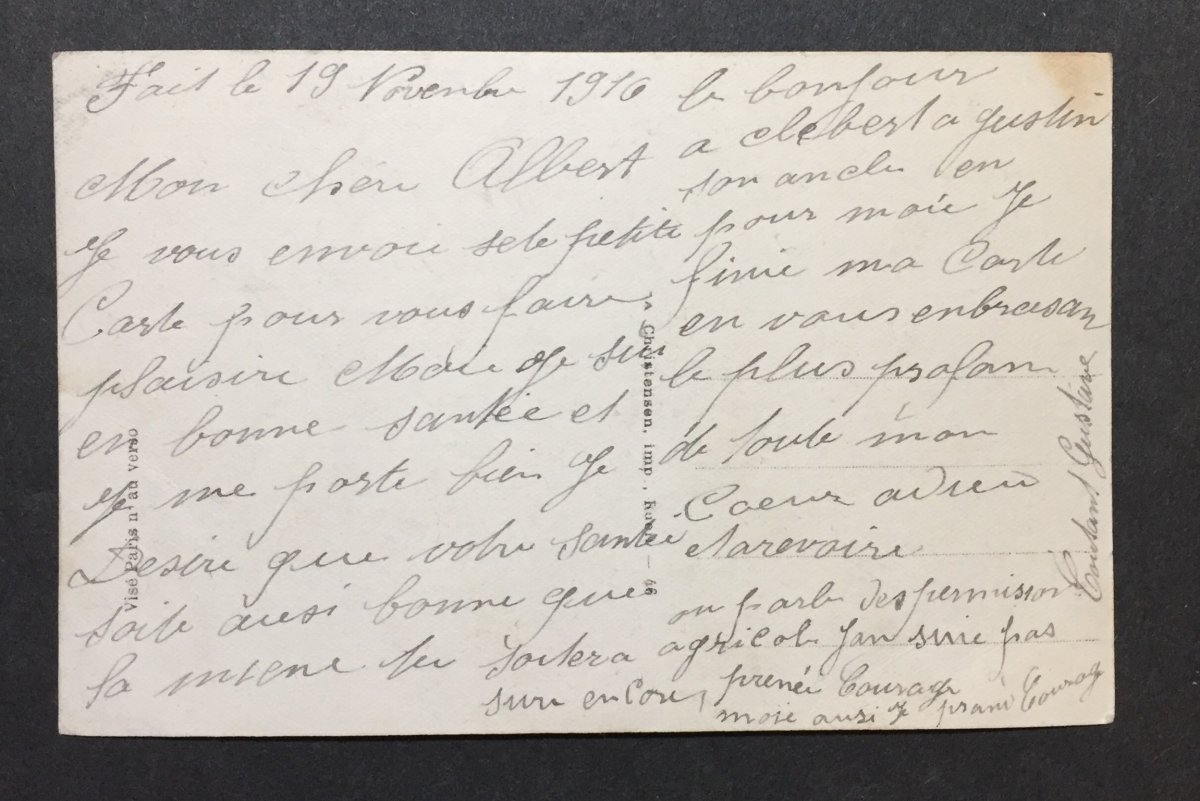 Fait le 19 Novenbre 1916
Mon chéri Albert
Je vous envoie sete petite
Carte pour vous faire
plaisire Moie je sui
en bonne santée et
je me porte bien Je
Desire que votre santée
soite ausi bonne que
la miene tu soitera
sure encore
le bonjour
a clebert a gustin
son oncle en
pour moie Je
finie ma Carte
en vous enbrasan
le plus profon
de toute mon
Coeur adieu
etarevoire
on parle des permision
agricole jan suie pas
prenée Courage
moie ausi je prani Courage
Coutant Gustave
Visé Paris n° au verso
Christensen, imp., — 46